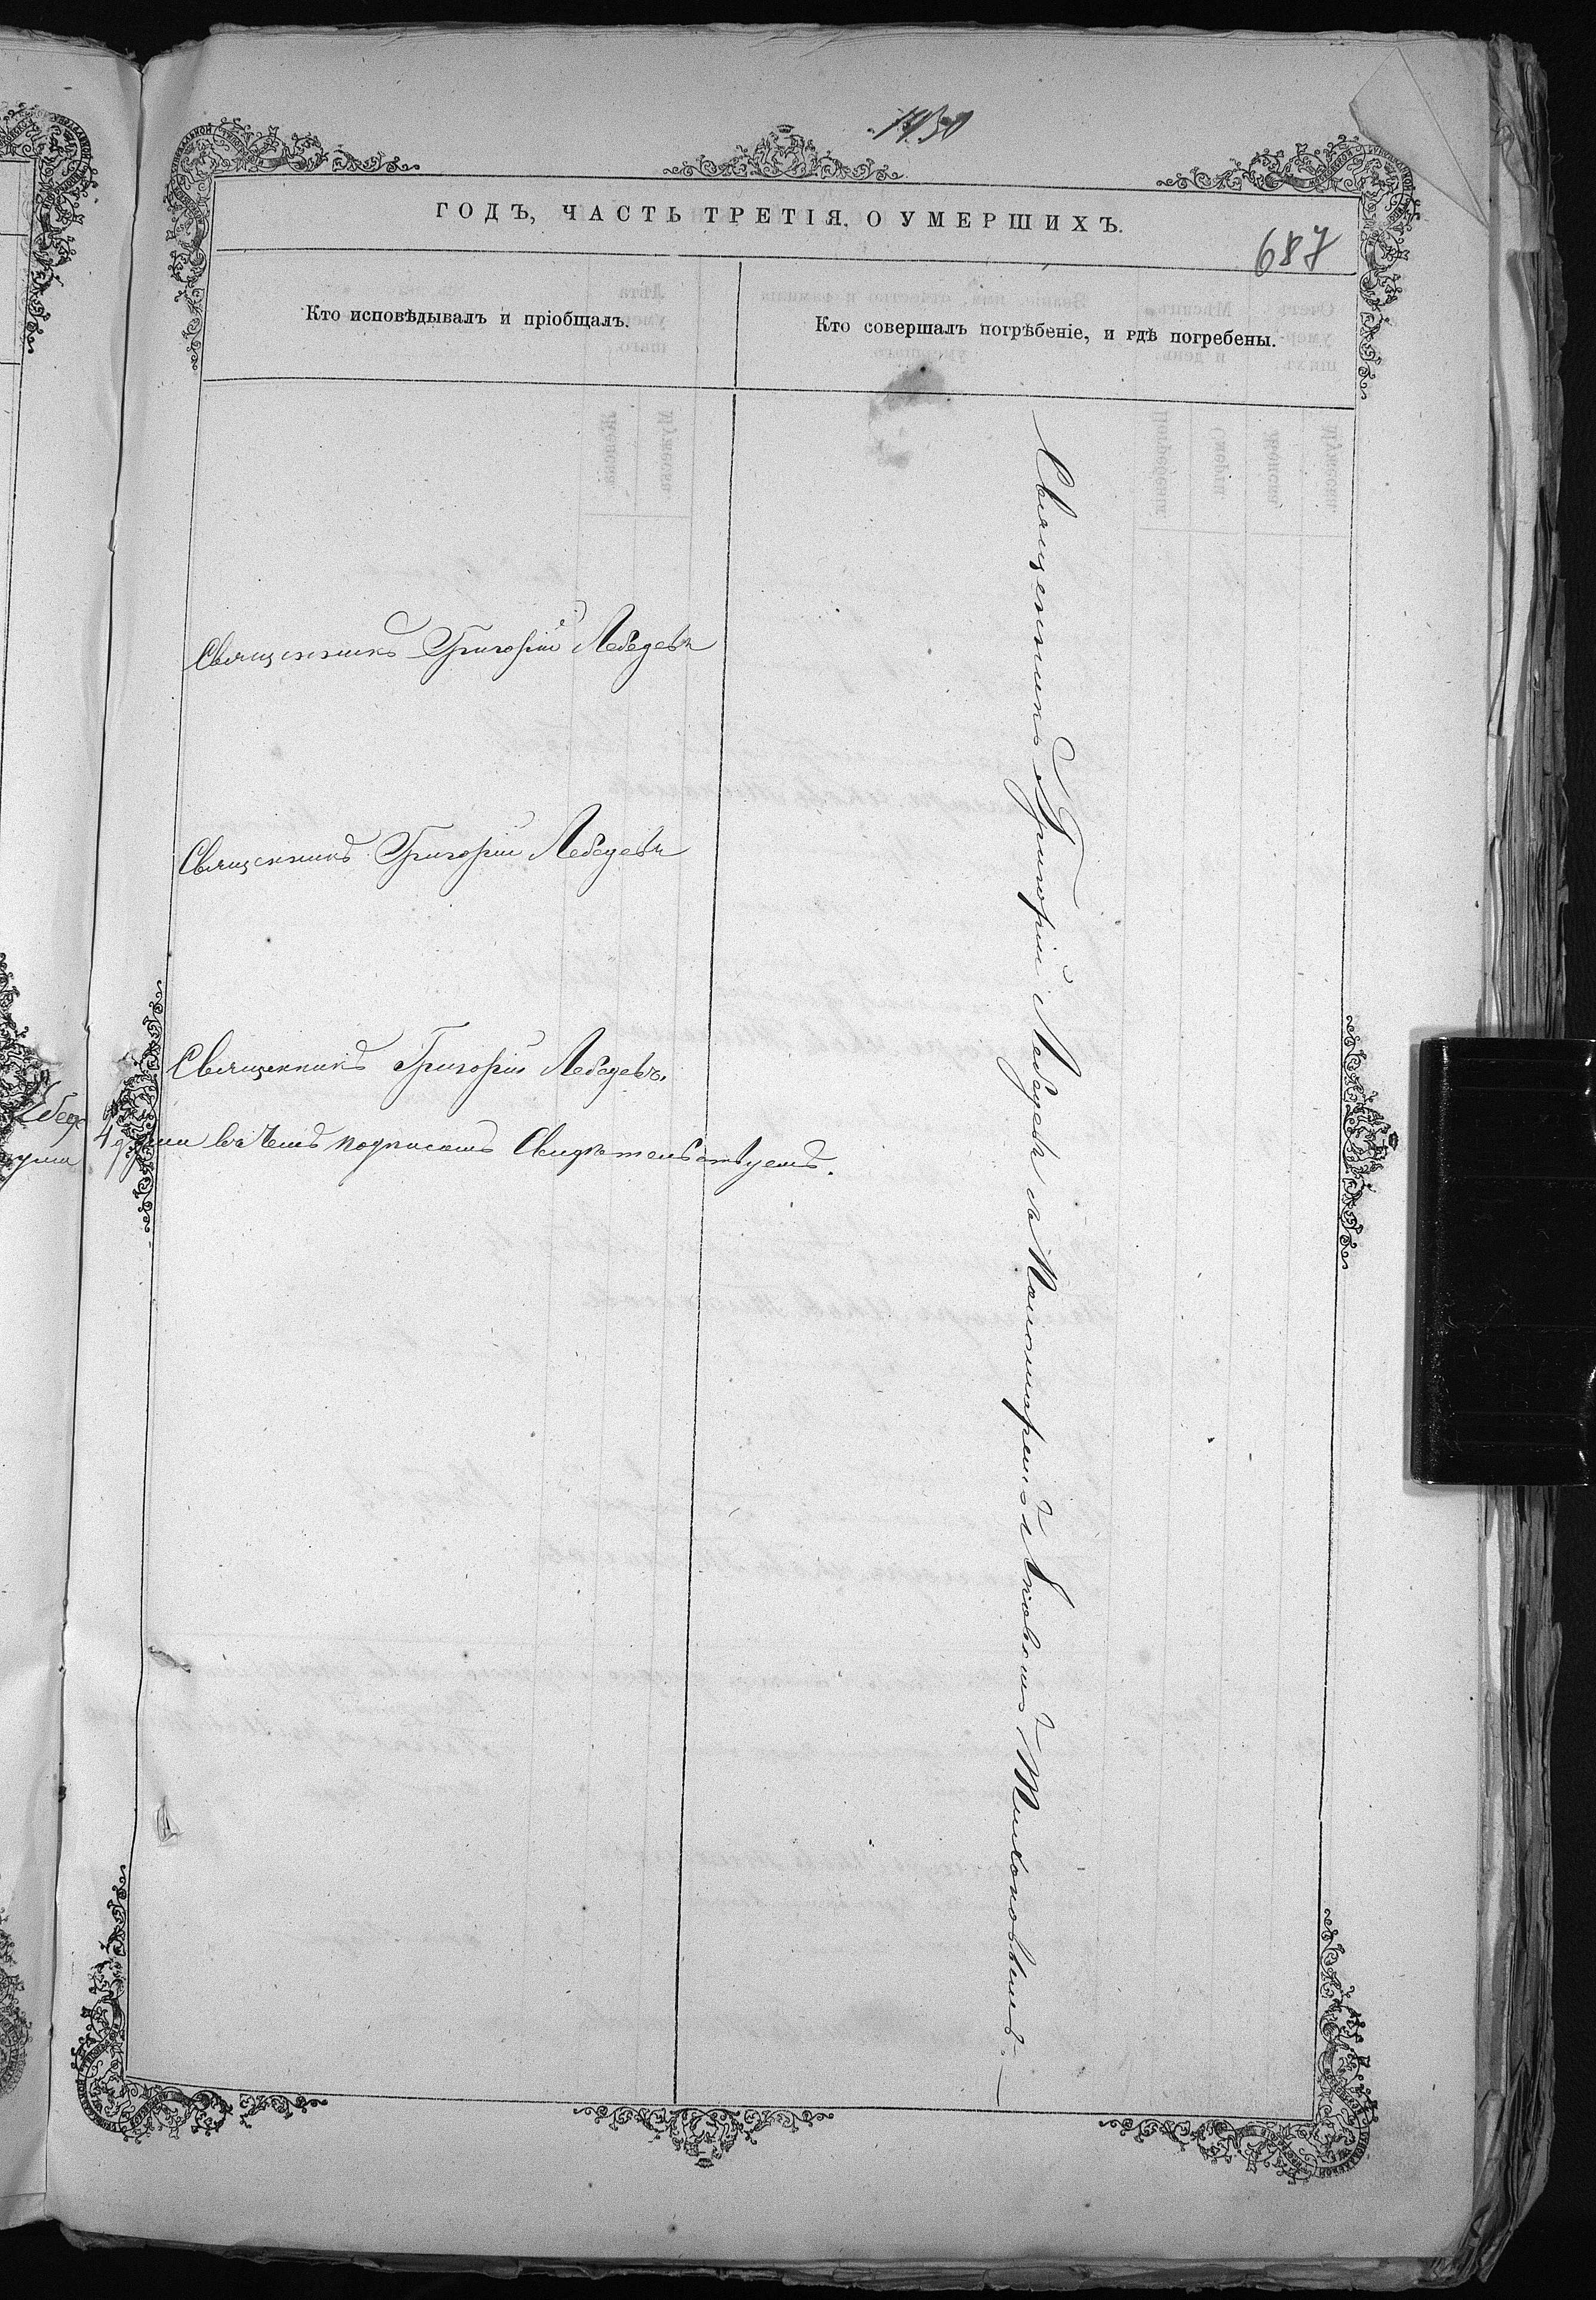 ГОДЪ, ЧАСТЬ ТРЕТІЯ. О УМЕРШИХЪ.
687
Кто исповѣдывалъ и пріобщалъ.
Кто совершалъ погрѣбеніе, и гдѣ погребены.
Священникъ Григорій Лебедевъ
Священникъ Григорій Лебедевъ
Священникъ Григорій Лебедевъ.
въ чемъ подписомъ Свидетельствуемъ.
Священникъ Григорій Лебедевъ съ Пономаремъ Яковомъ Тихоновымъ. —